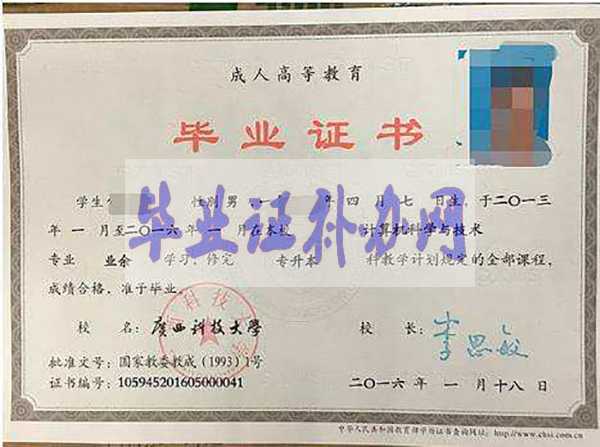 成人高等教育
毕业证书
学生 性别男 年四月七日生，于二〇一三
年一月至二〇一六年一月在本校 计算机科学与技术
专业 业余 学习，修完 专升本 科教学计划规定的全部课程，
成绩合格，准于毕业。
毕业证补办网
校 名：广西科技大学
校 长：李思敏
批准文号：国家教委教成（1993）1号
证书编号：105945201605000041
二〇一六年 一 月十八日
中华人民共和国教育部学历证书查询网址：http://www.chsi.com.cn